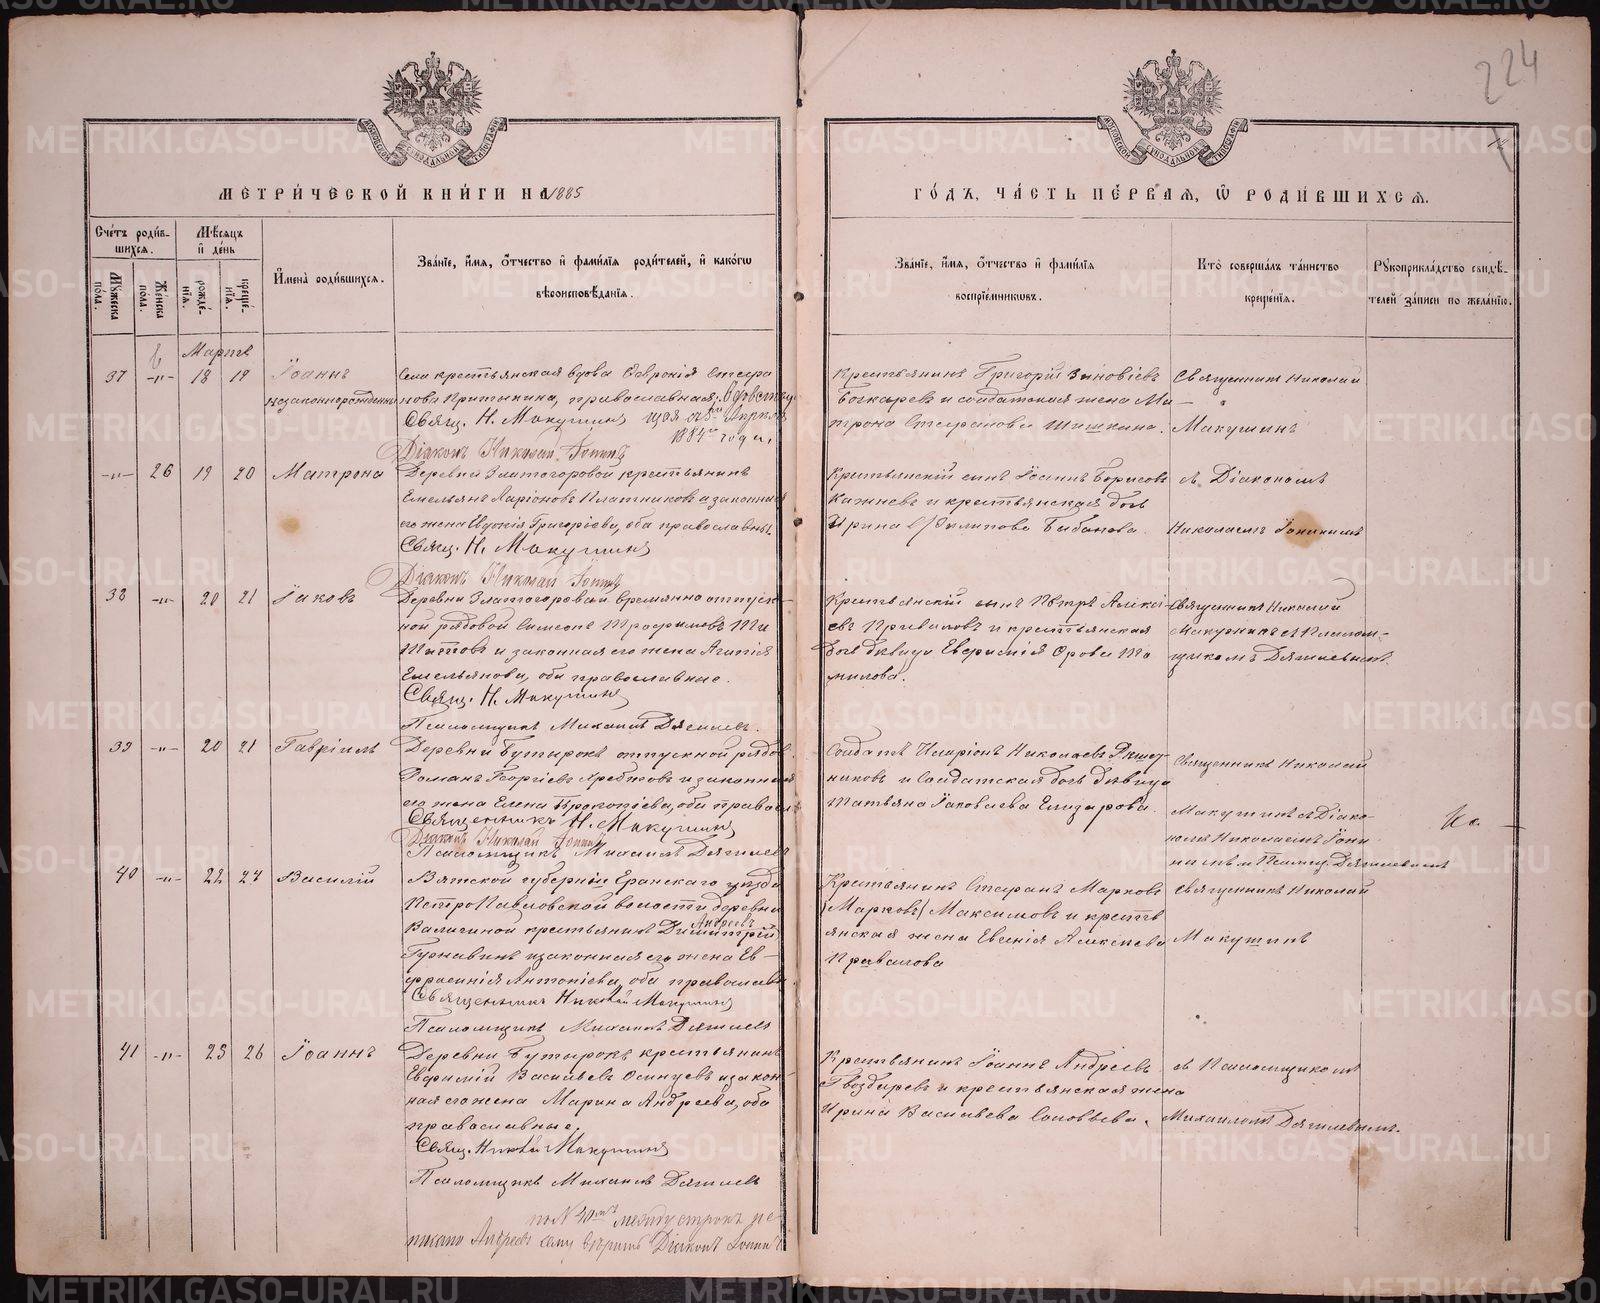 224
12
МОСКОВСКОЙ СѴНОДАЛЬНОЙ ТИПОГРАФІИ
МОСКОВСКОЙ СѴНОДАЛЬНОЙ ТИПОГРАФІИ
МЕТРИЧЕСКОЙ КНИГИ НА 1885
ГОДЪ, ЧАСТЬ ПЕРВАЯ, Ѡ РОДИВШИХСЯ.
Счетъ родив-
шихся.
Мѣсяцъ
и день
Мужеска
пола.
Женска
пола.
рожде-
нія.
креще-
нія.
Имена родившихся.
Званіе, имя, отчество и фамилія родителей, и какогѡ
вѣроисповѣданія.
Званіе, имя, отчество и фамилія
воспріемниковъ.
Кто совершалъ таинство
крещенія.
Рукоприкладство свидѣ-
телей записи по желанію.
Мартъ
37 -"- 18 19 Іоаннъ
незаконнорожденный
Села крестьянская вдова Евронія Стефа
нова православная.
Свящ. Н. Макушинъ
1884 года,
Діаконъ Николай Іонинъ
Крестьянинъ Григорій Зиновіевъ
Бочкаревъ и солдатская жена Ма-
трона Стефанова Шишкина.
Священникъ Николай
Макушинъ
-"- 26 19 20 Матрона
Деревни Златогоровой крестьянинъ
Емельянъ Ларіоновъ Плотниковъ и законная
его жена Евдокія Григоріева, оба православны.
Свящ. Н. Макушинъ
Діаконъ Николай Іонинъ
Крестьянскій сынъ Іоаннъ Борисовъ
и крестьянская дочь
Ирина Филипова
съ Діакономъ
Николаемъ Іонинымъ
38 -"- 20 21 Іаковъ
Деревни Златогоровой временно отпуск-
ной рядовой Симеонъ Трофимовъ Ти
товъ и законная его жена Агапія
Емельянова, оба православные.
Свящ. Н. Макушинъ
Псаломщикъ Михаилъ Дягилевъ.
Крестьянскій сынъ Петръ Алексі-
евъ Приваловъ и крестьянская
дочь дѣвица Евфросинія
Священникъ Николай
Макушинъ съ Псалом-
щикомъ Дягилевымъ.
39 -"- 20 21 Гавріилъ
Деревни Бутырокъ отпускной рядов.
Романъ Георгіевъ и законная
его жена Елена Прокопіева, оба правосл.
Священникъ Н. Макушинъ
Діаконъ Николай Іонинъ
Псаломщикъ Михаилъ Дягилевъ
Солдатъ Иларіонъ Николаевъ
и Солдатская дочь дѣвица
Татьяна Іаковлева Елизарова.
Священникъ Николай
Макушинъ съ Діако-
номъ Николаемъ Іони
нымъ и Псаломщ. Дягилевымъ
40 -"- 22 24 Василій
Вятской губерніи Еранскаго уѣзда
Петро Павловской волости деревни
Андреевъ
крестьянинъ Димитрій
и законная его жена Ев-
фросинія Антоніева, оба православн.
Священникъ Николай Макушинъ
Псаломщикъ Михаилъ Дягилевъ
Крестьянинъ Стефанъ Марковъ
/Марковъ/ Максимовъ и кресть
янская жена Евгенія Алексѣева
Привалова
Священникъ Николай
Макушинъ
41 -"- 25 26 Іоаннъ
Деревни Бутырокъ крестьянинъ
Евфимій Васильевъ Осинцевъ и закон-
ная его жена Марина Андреева, оба
православные.
Свящ. Николай Макушинъ
Псаломщикъ Михаилъ Дягилевъ
Крестьянинъ Іоаннъ Андреевъ
Гвоздыревъ и крестьянская жена
Ирина Васильева Соловьева.
съ Псаломщикомъ
Михаиломъ Дягилевымъ.
по № 40мъ между строкъ на-
писано Андреевъ сему вѣрить Діаконъ Іонинъ
METRIKI.GASO-URAL.RU